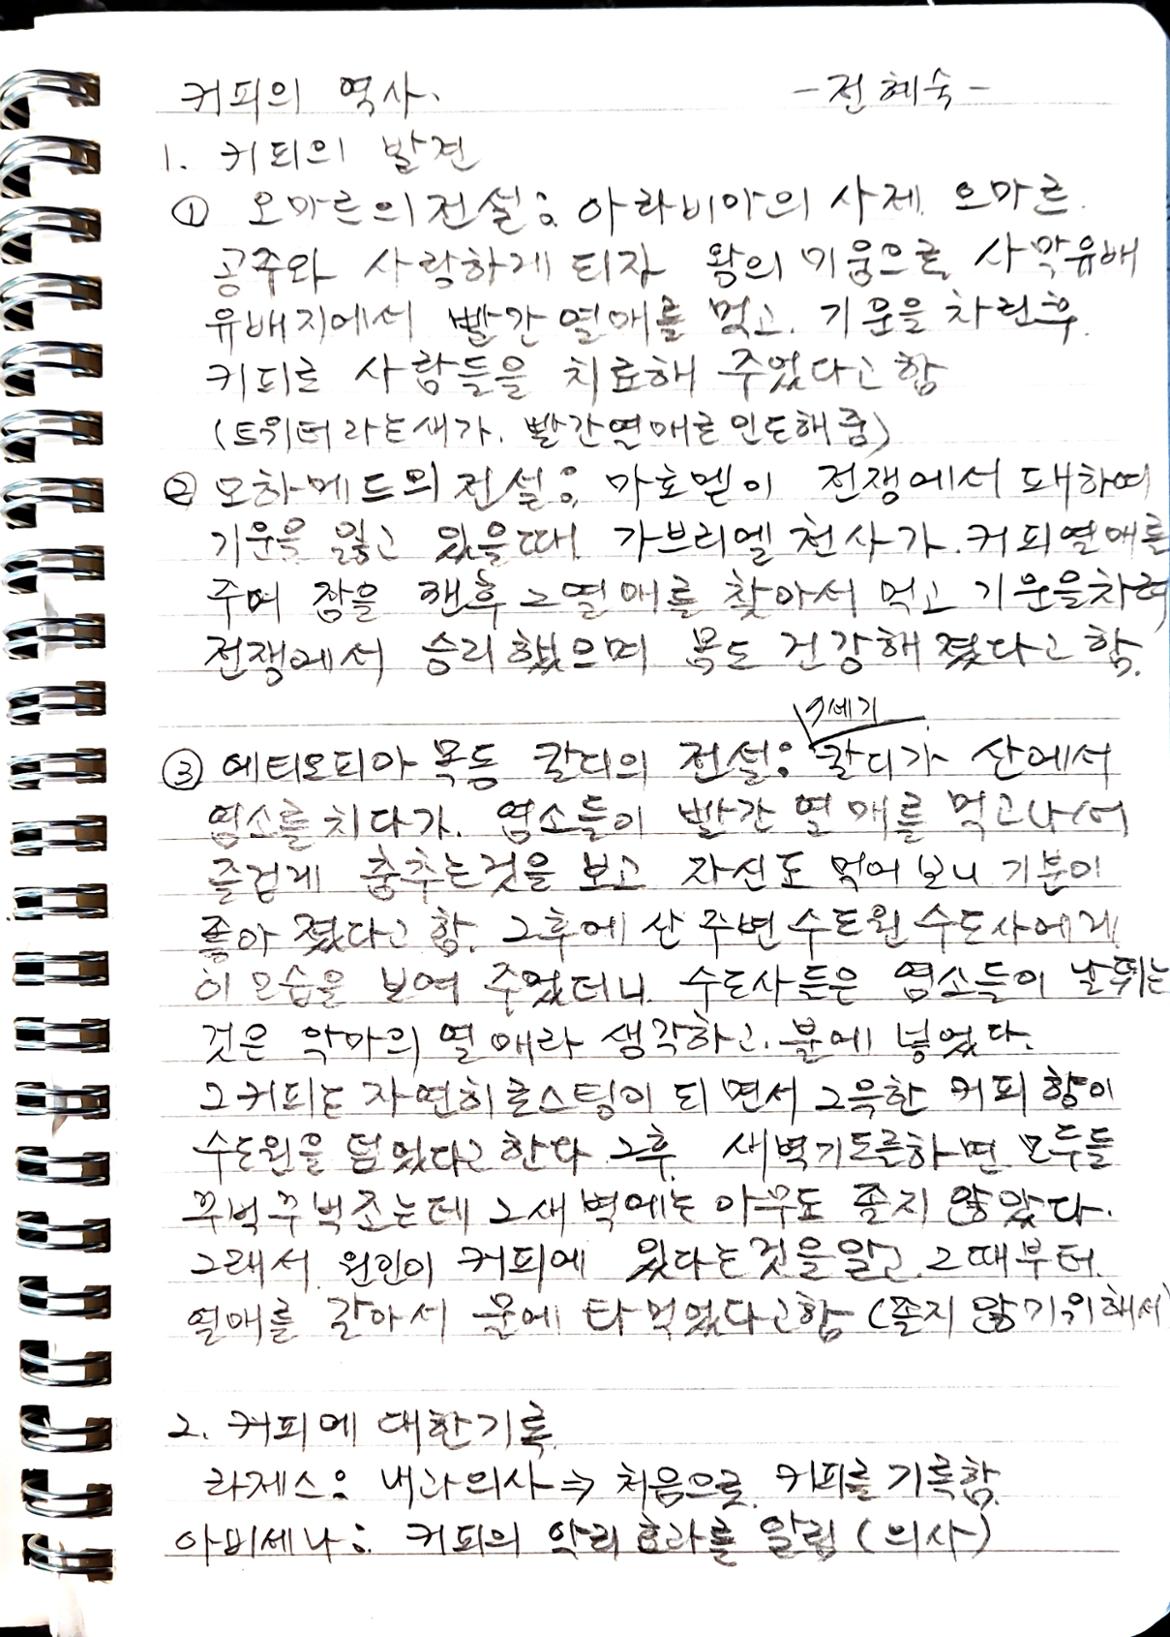 커피의 역사.
-전혜숙-
1. 커피의 발견
① 오마르의 전설: 아라비아의 사제 오마르.
공주와 사랑하게 되자 왕의 미움으로 사막유배
유배지에서 빨간 열매를 먹고. 기운을 차린후
커피로 사람들을 치료해 주었다고 함
(트위터라는새가. 빨간열매로인도해줌)
② 모하메드의 전설: 마호멜이 전쟁에서 패하여
기운을 잃고 있을때 가브리엘 천사가 커피열매를
주며 잠을 깬후 그열매를 찾아서 먹고 기운을차려
전쟁에서 승리했으며 몸도 건강해졌다고 함.
9세기
③ 에티오피아 목동 칼디의 전설: 칼디가 산에서
염소를 치다가. 염소들이 빨간 열매를 먹고나서
즐겁게 춤추는것을 보고 자신도 먹어보니 기분이
좋아 졌다고 함. 그후에 산 주변 수도원 수도사에게
이 모습을 보여 주었더니 수도사들은 염소들이 날뛰는
것은 악마의 열매라 생각하고. 불에 넣었다.
그커피는 자연히로스팅이 되면서 그윽한 커피 향이
수도원을 덮었다고 한다 그후 새벽기도를하면 모두들
꾸벅꾸벅조는데 그새벽에는 아무도 졸지 않았다.
그래서 원인이 커피에 있다는것을알고 그때부터
열매를 갈아서 물에 타먹었다고함 (졸지 않기위해서)
2. 커피에 대한기록
라제스: 내과의사⇒ 처음으로 커피를 기록함
아비세나: 커피의 약리효과를 알림 (의사)